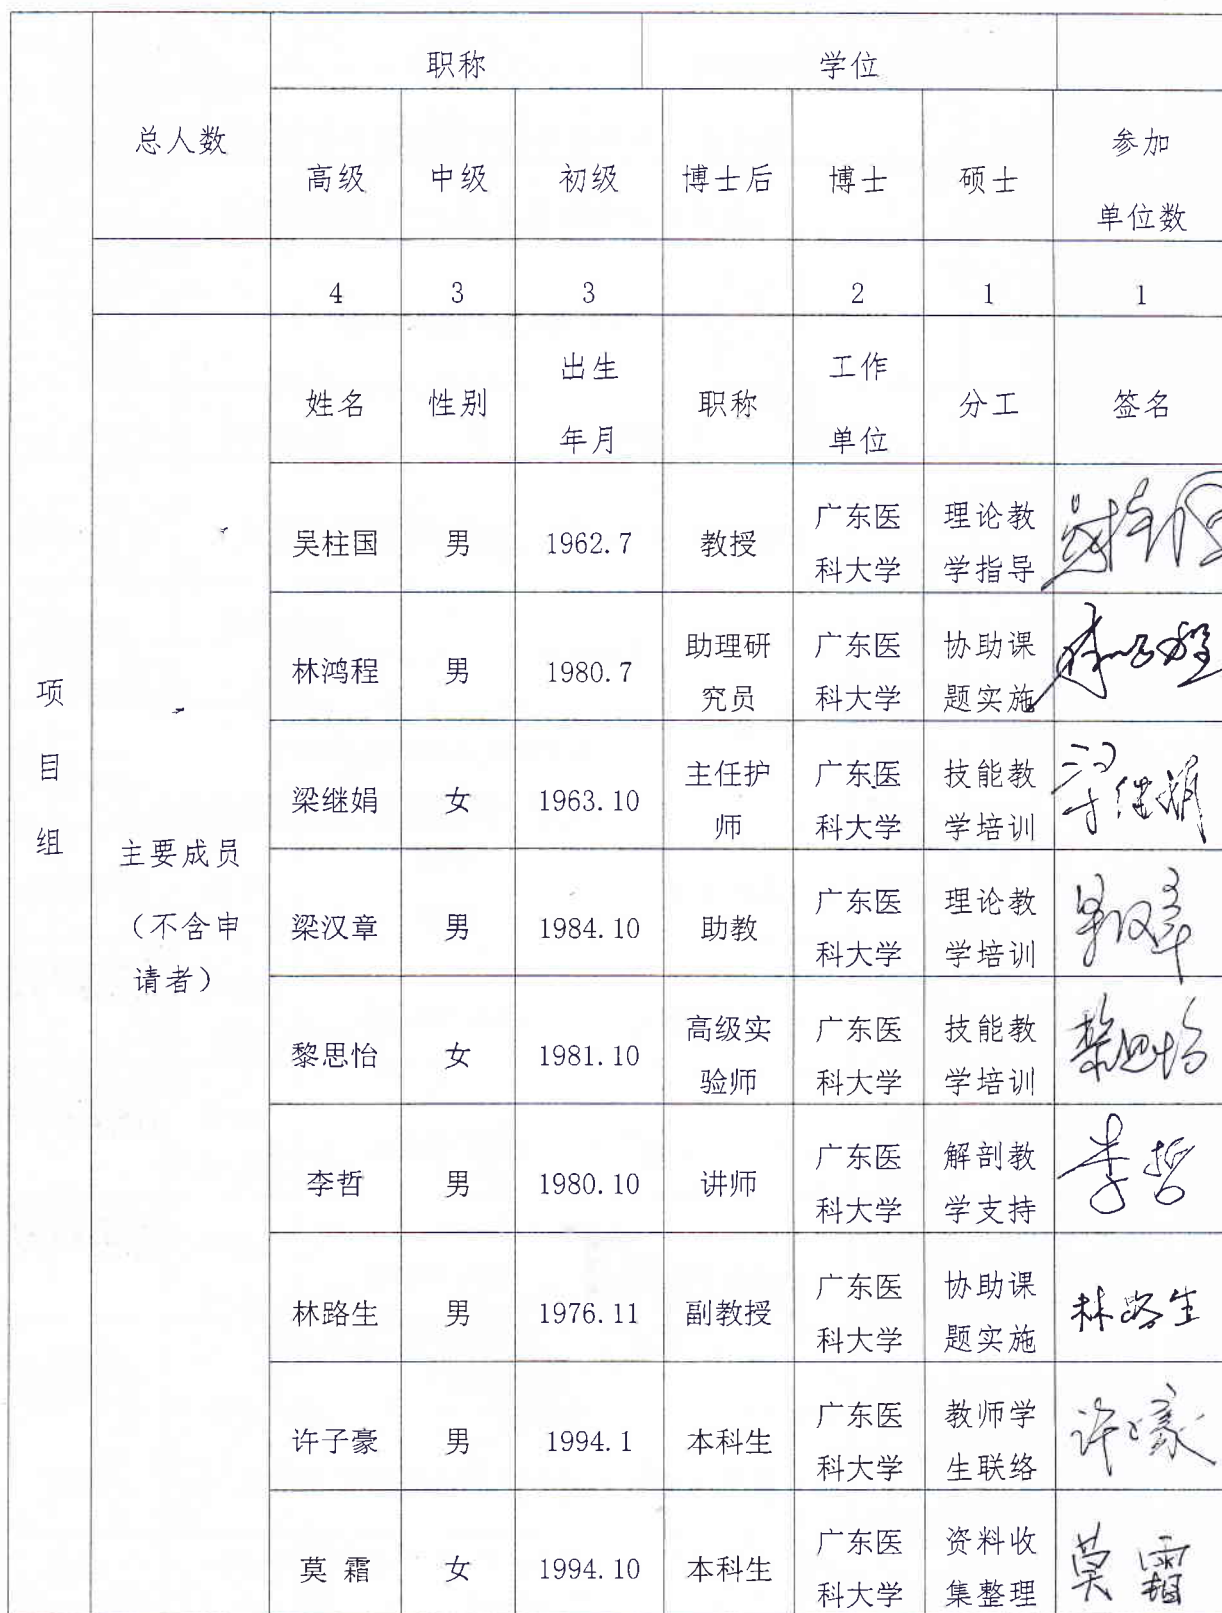 职称 学位
总人数 高级 中级 初级 博士后 博士 硕士 参加
单位数
4 3 3 2 1 1
项
目
组
主要成员
（不含申
请者）
姓名 性别 出生
年月 职称 工作
单位 分工 签名
吴柱国 男 1962.7 教授 广东医
科大学 理论教
学指导
林鸿程 男 1980.7 助理研
究员 广东医
科大学 协助课
题实施 林鸿程
梁继娟 女 1963.10 主任护
师 广东医
科大学 技能教
学培训 梁继娟
梁汉章 男 1984.10 助教 广东医
科大学 理论教
学培训 梁汉章
黎思怡 女 1981.10 高级实
验师 广东医
科大学 技能教
学培训 黎思怡
李哲 男 1980.10 讲师 广东医
科大学 解剖教
学支持 李哲
林路生 男 1976.11 副教授 广东医
科大学 协助课
题实施 林路生
许子豪 男 1994.1 本科生 广东医
科大学 教师学
生联络 许子豪
莫 霜 女 1994.10 本科生 广东医
科大学 资料收
集整理 莫 霜